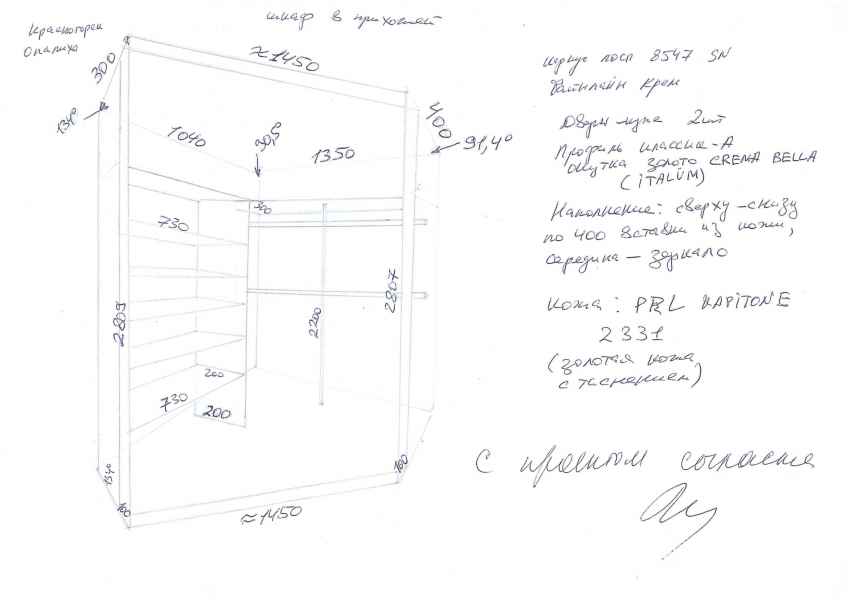 шкаф в прихожей
Красногорск
Опалиха
300
≈1450
134°
1040
90,5
1350
400
91,4°
730
300
2809
2200
2807
730
200
200
134°
100
100
≈1450
корпус лосп 8547 SN
Фатнлайн крем
Двери-купе 2шт
Профиль классик-А
окутка золото CREMA BELLA
(ITALUM)
Наполнение: сверху-снизу
по 400 вставки из кожи,
середина — зеркало
Кожа: PRL KAPITONE
2331
(золотая кожа
с тиснением)
С проектом согласна